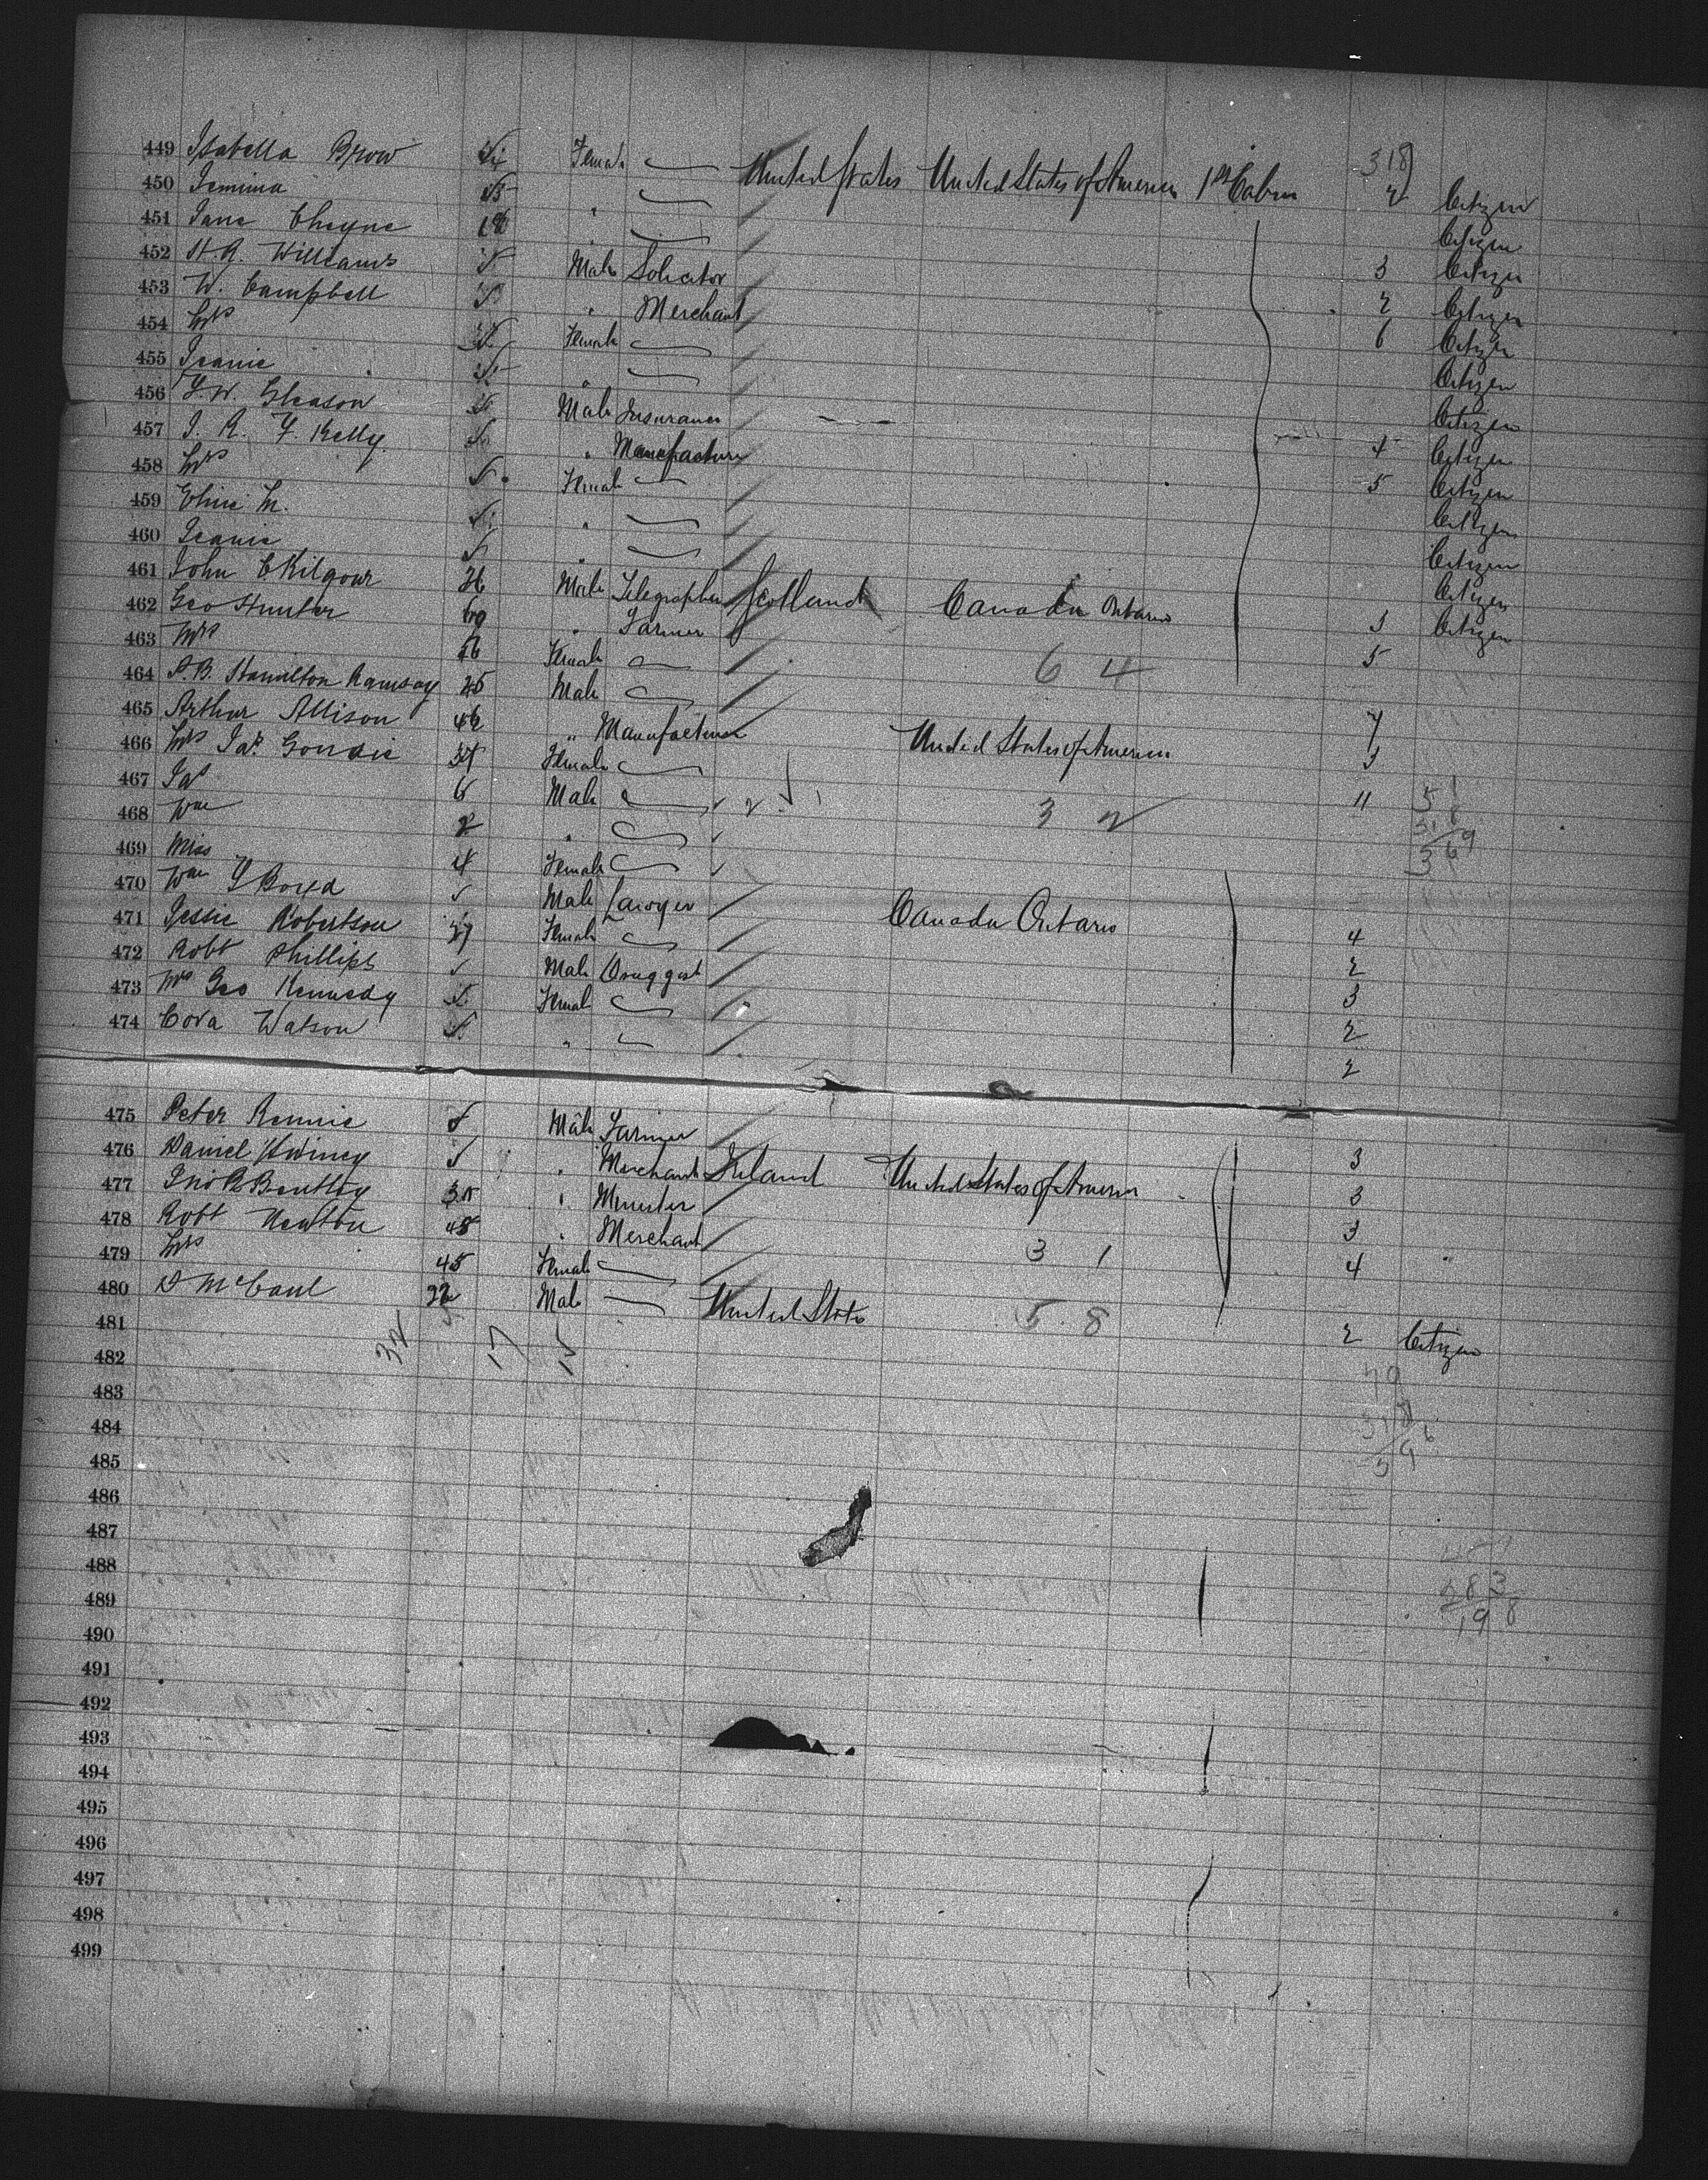 318
449 Isabella Brow Female United States United States of America 1st Cabin 2 Citizen
450 Jemima " Citizen
451 Jane Cheyne " 3 Citizen
452 H.R. Williams Male Solicitor 2 Citizen
453 W. Campbell " Merchant 6 Citizen
454 Mrs Female Citizen
455 Jeanie " Citizen
456 Gleason Male Insurance 4 Citizen
457 J. R. Y. Kelly Manufacturer 5 Citizen
458 Mrs Female Citizen
459 M. " Citizen
460 Jeanie " Citizen
461 John C Kilgour 26 Male Telegrapher Scotland Canada Ontario 3 Citizen
462 Geo Hunter 60 " Farmer 5
463 Mrs 56 Female 6 4
464 Hamilton Ramsay 25 Male 7
465 Arthur Allison 42 " Manufacturer United States of America 3
466 Mrs Jas Goudie 34 Female 11
467 Jas 6 Male 3 2
468 Wm 2 "
469 Miss 4 Female
470 Wm Y Boyd Male Lawyer Canada Ontario 4
471 Jessie Robertson 27 Female 2
472 Robt Phillips Male Druggist 3
473 Mrs Geo Kennedy Female 2
474 Cora Watson " 2
475 Peter Rennie Male Farmer 3
476 Daniel " Merchant Ireland United States of America 3
477 Jno R Bentley 35 " Minister 3
478 Robt Newton 48 " Merchant 3 1 4
479 Mrs 45 Female
480 D McCaul 22 Male United States 5 8 2 Citizen
481 32 17 15
482
483
484
485
486
487
488
489
490
491
492
493
494
495
496
497
498
499